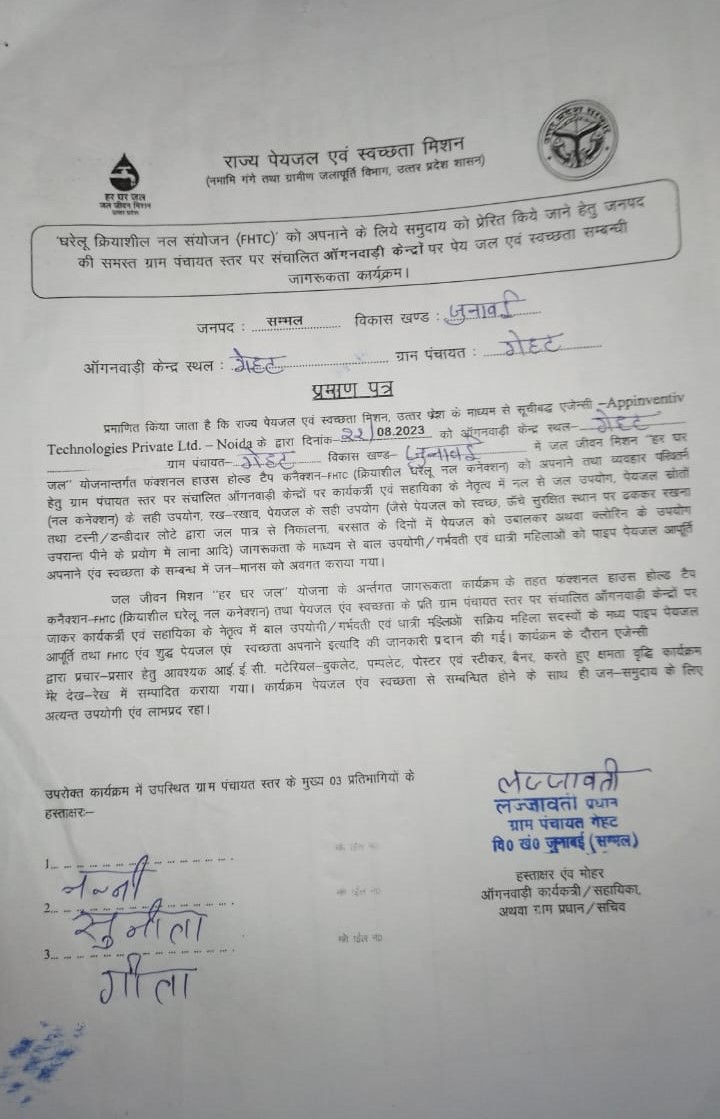 राज्य पेयजल एवं स्वच्छता मिशन
(नमामि गंगे तथा ग्रामीण जलापूर्ति विभाग, उत्तर प्रदेश शासन)
उत्तर प्रदेश सरकार
हर घर जल
जल जीवन मिशन
उत्तर प्रदेश
'घरेलू क्रियाशील नल संयोजन (FHTC)' को अपनाने के लिये समुदाय को प्रेरित किये जाने हेतु जनपद
की समस्त ग्राम पंचायत स्तर पर संचालित ऑगनवाड़ी केन्द्रों पर पेय जल एवं स्वच्छता सम्बन्धी
जागरूकता कार्यक्रम।
जनपद : सम्मल विकास खण्ड : जुनावई
ऑगनवाड़ी केन्द्र स्थल : गेहट ग्रान पंचायत : गेहट
प्रमाण पत्र
प्रमाणित किया जाता है कि राज्य पेयजल एवं स्वच्छता मिशन, उत्तर प्रेश के माध्यम से सूचीबद्ध एजेन्सी –Appinventiv
Technologies Private Ltd. – Noida के द्वारा दिनांक– 22/08.2023 को ऑगनवाड़ी केन्द्र स्थल– गेहट
ग्राम पंचायत– गेहट विकास खण्ड– जुनावई में जल जीवन मिशन "हर घर
जल" योजनान्तर्गत फंक्शनल हाउस होल्ड टैप कनैक्शन–FHTC (क्रियाशील घरेलू नल कनेक्शन) को अपनाने तथा व्यवहार परिवर्तन
हेतु ग्राम पंचायत स्तर पर संचालित ऑगनवाड़ी केन्द्रों पर कार्यकर्त्री एवं सहायिका के नेतृत्व में नल से जल उपयोग, पेयजल स्रोतों
(नल कनेक्शन) के सही उपयोग, रख-रखाव, पेयजल के सही उपयोग (जेसे पेयजल को स्वच्छ, ऊँचे सुरक्षित स्थान पर ढककर रखना
तथा टस्नी/डन्डीदार लोटे द्वारा जल पात्र से निकालना, बरसात के दिनों में पेयजल को उबालकर अथवा क्लोरिन के उपयोग
उपरान्त पीने के प्रयोग में लाना आदि) जागरूकता के माध्यम से बाल उपयोगी/गर्भवती एवं धात्री महिलाओं को पाइप पेयजल आपूर्ति
अपनाने एंव स्वच्छता के सम्बन्ध में जन-मानस को अवगत कराया गया।
जल जीवन मिशन "हर घर जल" योजना के अर्न्तगत जागरूकता कार्यक्रम के तहत फंक्शनल हाउस होल्ड टैप
कनैक्शन–FHTC (क्रियाशील घरेलू नल कनेक्शन) तथा पेयजल एंव स्वच्छता के प्रति ग्राम पंचायत स्तर पर संचालित ऑगनवाड़ी केन्द्रों पर
जाकर कार्यकर्त्री एवं सहायिका के नेतृत्व में बाल उपयोगी/गर्भवती एवं धात्री महिलओं सक्रिय महिला सदस्यों के मध्य पाइप पेयजल
आपूर्ति तथा FHTC एंव शुद्ध पेयजल एवं स्वच्छता अपनाने इत्यादि की जानकारी प्रदान की गई। कार्यक्रम के दौरान एजेन्सी
द्वारा प्रचार-प्रसार हेतु आवश्यक आई.ई.सी. मटेरियल-बुकलेट, पम्पलेट, पोस्टर एवं स्टीकर, बैनर, करते हुए क्षमता वृद्धि कार्यक्रम
मेरे देख-रेख में सम्पादित कराया गया। कार्यक्रम पेयजल एंव स्वच्छता से सम्बन्धित होने के साथ ही जन-समुदाय के लिए
अत्यन्त उपयोगी एंव लाभप्रद रहा।
उपरोक्त कार्यक्रम में उपस्थित ग्राम पंचायत स्तर के मुख्य 03 प्रतिभागियों के
हस्ताक्षरः–
1... नन्नी
2... सुनीता
3... गीता
लज्जावती
लज्जावती प्रधान
ग्राम पंचायत गेहट
वि0 खं0 जुनाबई (सम्भल)
हस्ताक्षर एंव मोहर
ऑगनवाड़ी कार्यकत्री/सहायिका,
अथवा ग्राम प्रधान/सचिव